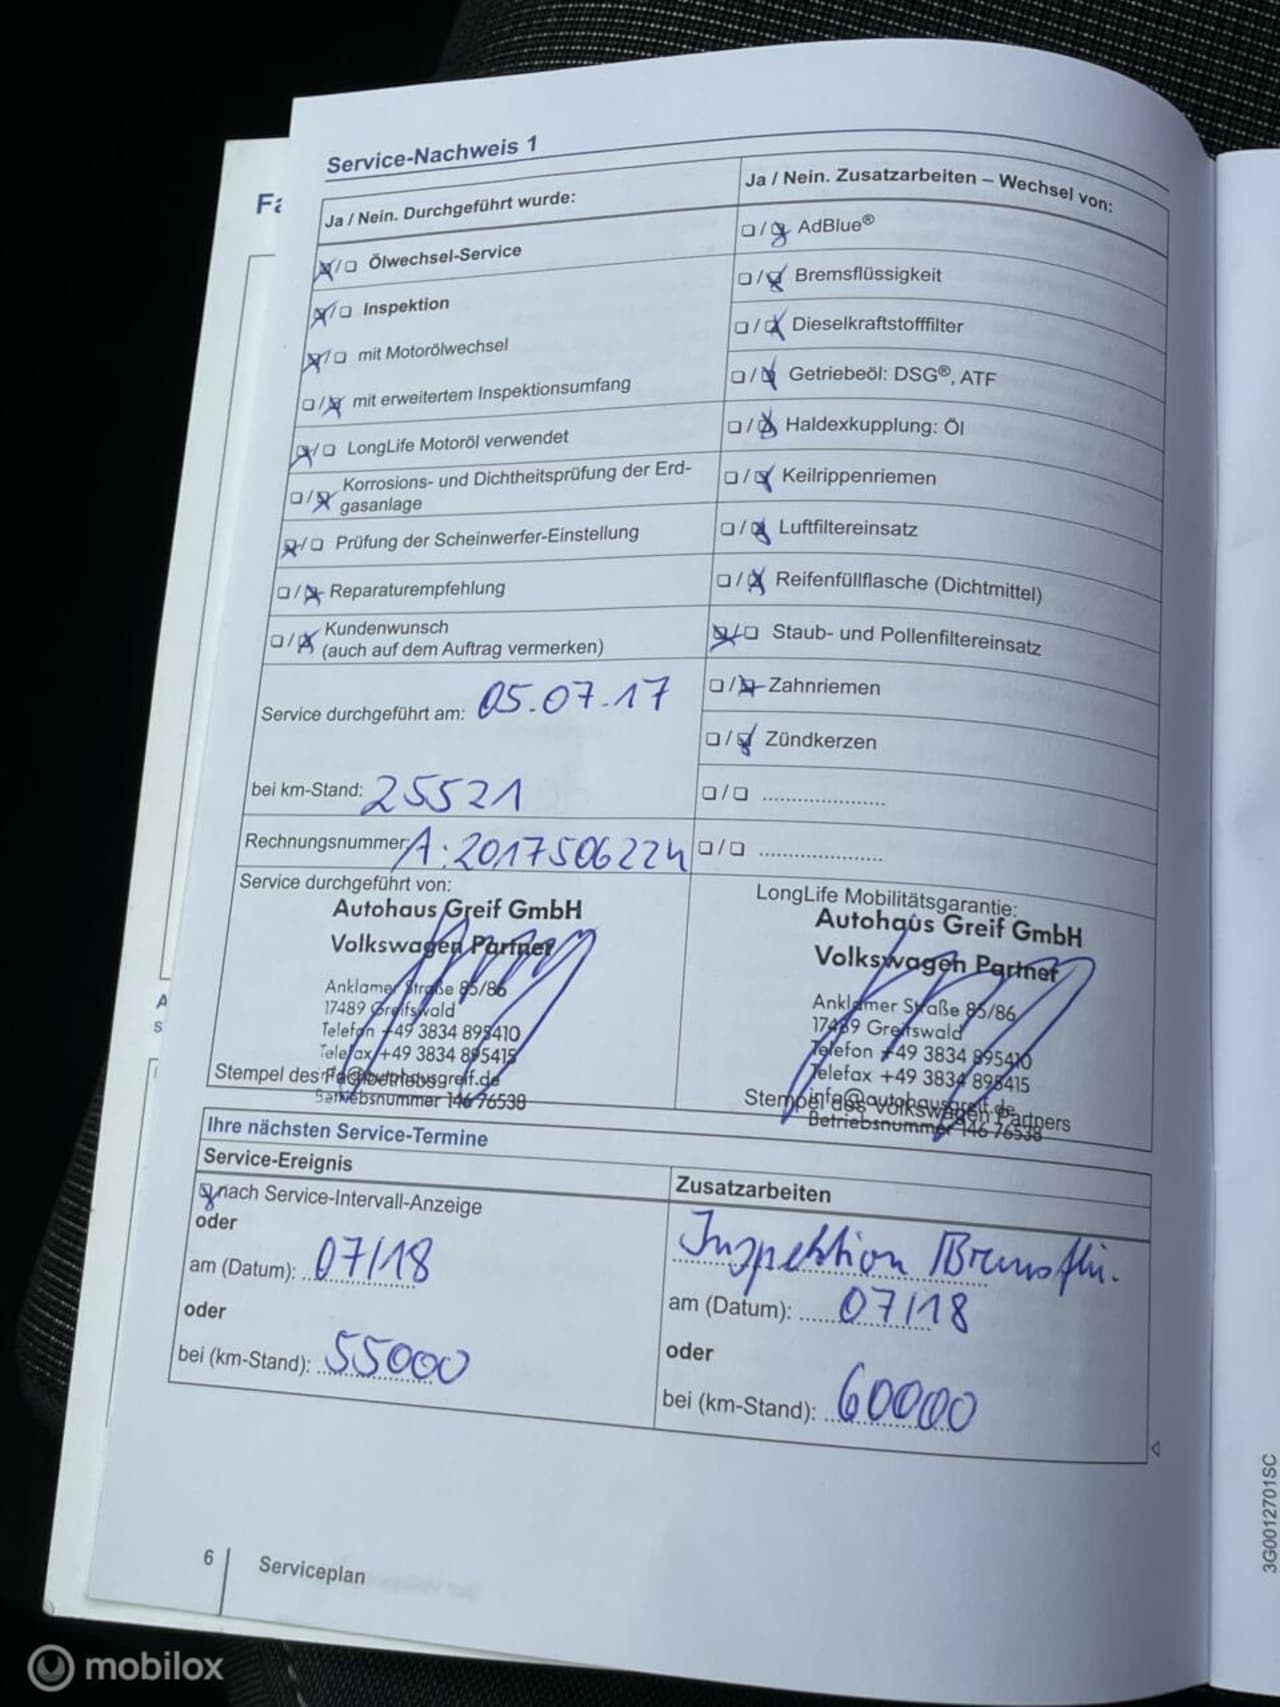 Service-Nachweis 1
Fa
Ja / Nein. Durchgeführt wurde:
Ölwechsel-Service
Inspektion
mit Motorölwechsel
mit erweitertem Inspektionsumfang
LongLife Motoröl verwendet
Korrosions- und Dichtheitsprüfung der Erd-
gasanlage
Prüfung der Scheinwerfer-Einstellung
Reparaturempfehlung
Kundenwunsch
(auch auf dem Auftrag vermerken)
Service durchgeführt am: 05.07.17
bei km-Stand: 25521
Rechnungsnummer: A:2017506224
Service durchgeführt von:
Autohaus Greif GmbH
Volkswagen Partner
Anklamer Straße 85/86
17489 Greifswald
Telefon +49 3834 895410
Telefax +49 3834 895415
Stempel des
Betriebsnummer 146 76538
Ja / Nein. Zusatzarbeiten – Wechsel von:
AdBlue®
Bremsflüssigkeit
Dieselkraftstofffilter
Getriebeöl: DSG®, ATF
Haldexkupplung: Öl
Keilrippenriemen
Luftfiltereinsatz
Reifenfüllflasche (Dichtmittel)
Staub- und Pollenfiltereinsatz
Zahnriemen
Zündkerzen
LongLife Mobilitätsgarantie:
Autohaus Greif GmbH
Volkswagen Partner
Anklamer Straße 85/86
17489 Greifswald
Telefon +49 3834 895410
Telefax +49 3834 895415
info@autohausgreif.de
Stempel des Volkswagen Partners
Betriebsnummer 146 76538
Ihre nächsten Service-Termine
Service-Ereignis
nach Service-Intervall-Anzeige
oder
am (Datum): 07/18
oder
bei (km-Stand): 55000
Zusatzarbeiten
Inspektion / Bremsflü.
am (Datum): 07/18
oder
bei (km-Stand): 60000
6 Serviceplan
3G0012701SC
mobilox